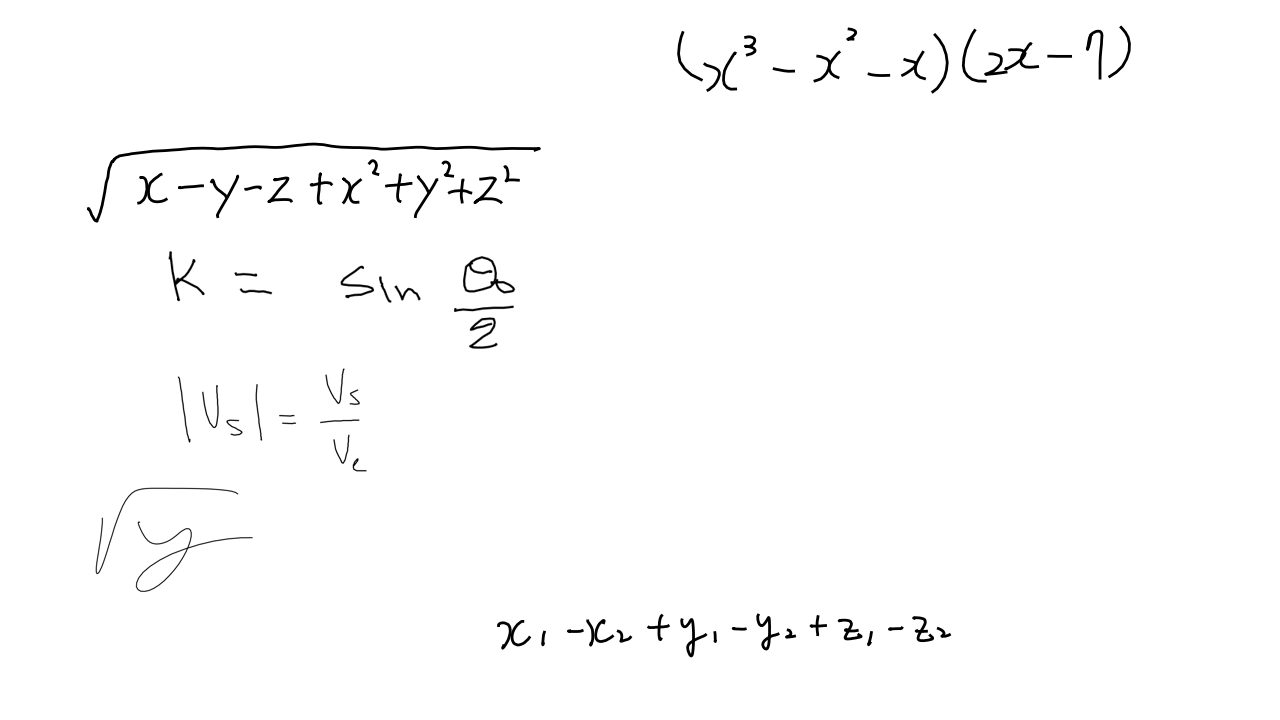 (x³ - x² - x)(2x - 7)
√(x - y - z + x² + y² + z²)
K = sin θ₀/2
|V_s| = V_s/V_e
√y
x₁ - x₂ + y₁ - y₂ + z₁ - z₂